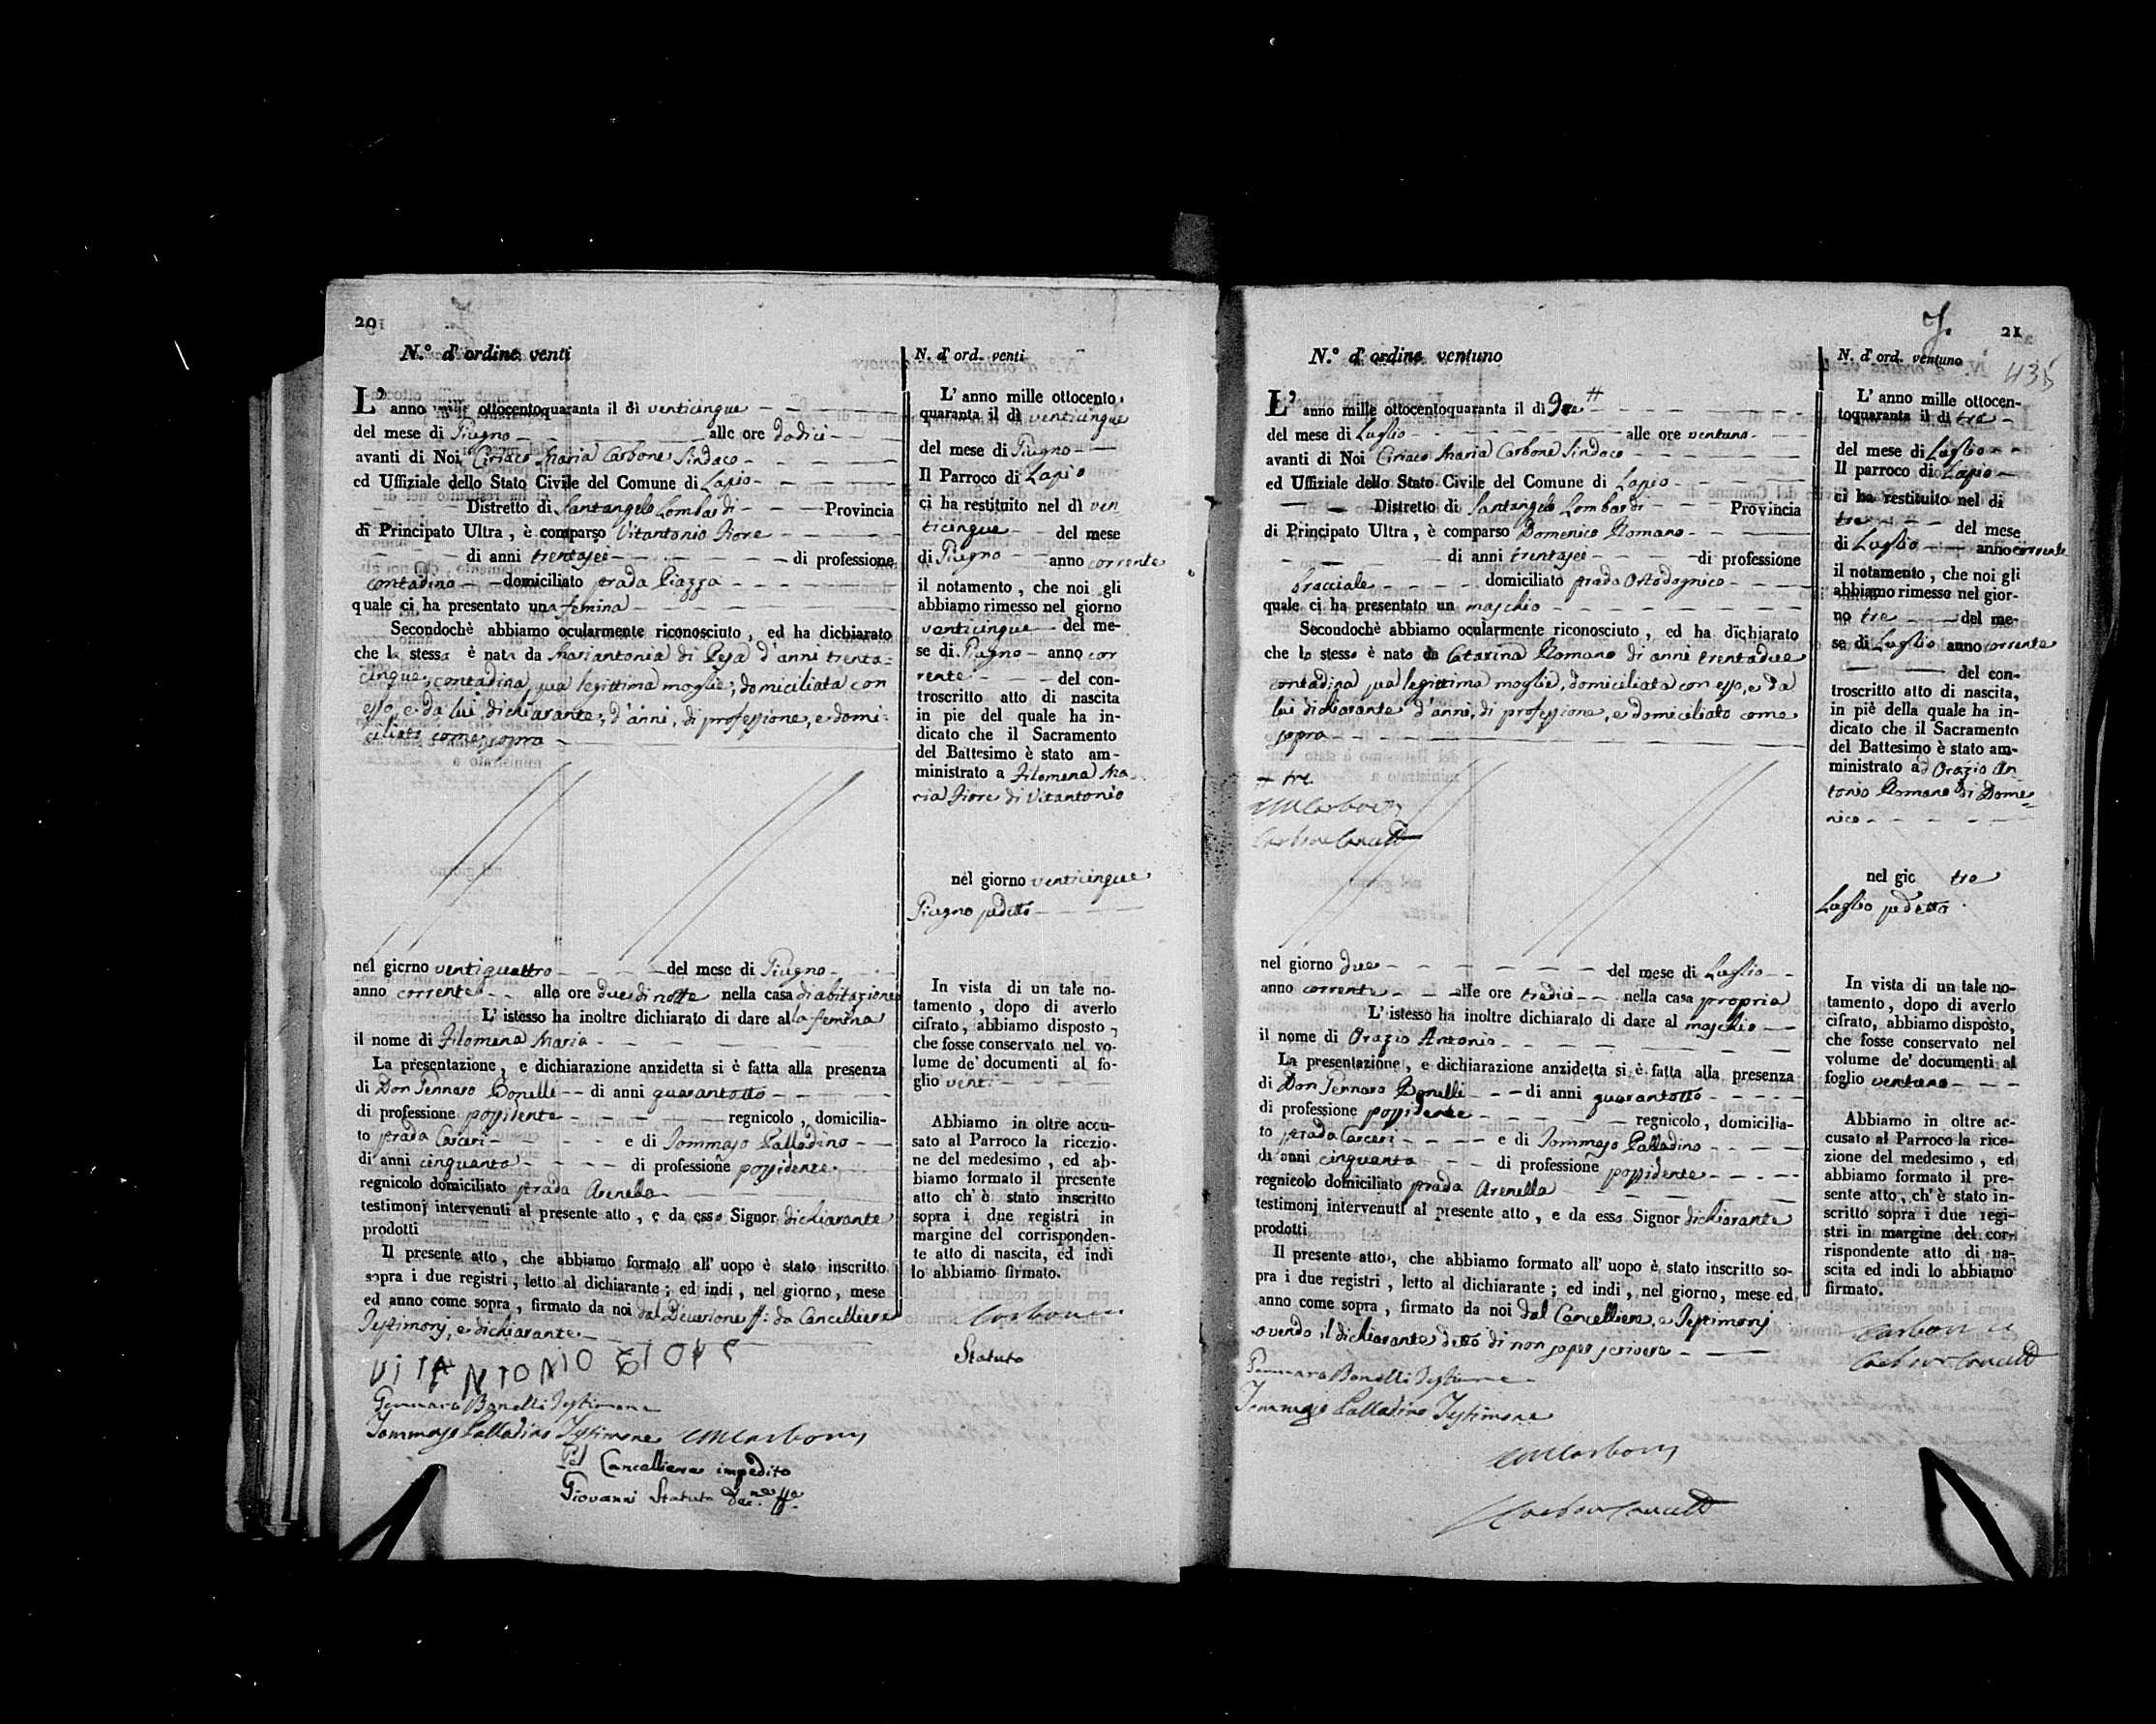 20
N.° d'ordine venti
L'anno mille ottocentoquaranta il dì venticinque
del mese di Giugno alle ore dodici
avanti di Noi Ciriaco Maria Carbone Sindaco
ed Uffiziale dello Stato Civile del Comune di Lapio
Distretto di Santangelo Lombardi Provincia
di Principato Ultra, è comparso Vitantonio Fiore
di anni trentasei di professione
contadino domiciliato strada Piazza
quale ci ha presentato una femina
Secondochè abbiamo ocularmente riconosciuto, ed ha dichiarato
che la stessa è nata da Mariantonia di Pesa d'anni trenta=
cinque, contadina, sua legittima moglie, domiciliata con
esso, e da lui dichiarante, d'anni, di professione, e domi=
ciliato come sopra
nel giorno ventiquattro del mese di Giugno
anno corrente alle ore due di notte nella casa di abitazione
L'istesso ha inoltre dichiarato di dare alla femina
il nome di Filomena Maria
La presentazione, e dichiarazione anzidetta si è fatta alla presenza
di Don Gennaro Bonelli di anni quarantotto
di professione possidente regnicolo, domicilia-
to strada Carceri e di Tommaso Palladino
di anni cinquanta di professione possidente
regnicolo domiciliato strada Arenella
testimonj intervenuti al presente atto, e da esso Signor dichiarante
prodotti
Il presente atto, che abbiamo formato all'uopo è stato inscritto
sopra i due registri, letto al dichiarante; ed indi, nel giorno, mese
ed anno come sopra, firmato da noi dal Decurione ff: da Cancelliere
Testimonj, e dichiarante
VITANTONIO FIORE
Gennaro Bonelli Testimone
Tommaso Palladino Testimone CMCarbone
Pel Cancelliere impedito
Giovanni Statuto Dec.ne ff.e
N. d'ord. venti
L'anno mille ottocento
quaranta il dì venticinque
del mese di Giugno
Il Parroco di Lapio
ci ha restituito nel dì ven
ticinque del mese
di Giugno anno corrente
il notamento, che noi gli
abbiamo rimesso nel giorno
venticinque del me-
se di Giugno anno cor
rente del con-
troscritto atto di nascita
in pie del quale ha in-
dicato che il Sacramento
del Battesimo è stato am-
ministrato a Filomena Ma
ria Fiore di Vitantonio
nel giorno venticinque
Giugno sudetto
In vista di un tale no-
tamento, dopo di averlo
cifrato, abbiamo disposto,
che fosse conservato nel vo-
lume de' documenti al fo-
glio venti
Abbiamo in oltre accu-
sato al Parroco la ricezio-
ne del medesimo, ed ab-
biamo formato il presente
atto ch'è stato inscritto
sopra i due registri in
margine del corrisponden-
te atto di nascita, ed indi
lo abbiamo firmato.
Carbone
Statuto
21
435
N.° d'ordine ventuno
L'anno mille ottocentoquaranta il dì
del mese di Luglio alle ore ventuno
avanti di Noi Ciriaco Maria Carbone Sindaco
ed Uffiziale dello Stato Civile del Comune di Lapio
Distretto di Santangelo Lombardi Provincia
di Principato Ultra, è comparso Domenico Romano
di anni trentasei di professione
bracciale domiciliato strada Ortodagnico
quale ci ha presentato un maschio
Secondochè abbiamo ocularmente riconosciuto, ed ha dichiarato
che lo stesso è nato da Catarina Romano di anni trentadue
contadina sua legittima moglie, domiciliata con esso, e da
lui dichiarante d'anni, di professione, e domiciliato come
sopra
# tre
CMCarbone
Carbone Cancell.
nel giorno due del mese di Luglio
anno corrente alle ore tredici nella casa propria
L'istesso ha inoltre dichiarato di dare al maschio
il nome di Orazio Antonio
La presentazione, e dichiarazione anzidetta si è fatta alla presenza
di Don Gennaro Bonelli di anni quarantotto
di professione possidente regnicolo, domicilia-
to strada Carceri e di Tommaso Palladino
di anni cinquanta di professione possidente
regnicolo domiciliato strada Arenella
testimonj intervenuti al presente atto, e da esso Signor dichiarante
prodotti
Il presente atto, che abbiamo formato all'uopo è stato inscritto so-
pra i due registri, letto al dichiarante; ed indi, nel giorno, mese ed
anno come sopra, firmato da noi dal Cancelliere, e Testimonj
avendo il dichiarante detto di non saper scrivere
Gennaro Bonelli Testimone
Tommaso Palladino Testimone
CMCarbone
Carbone Cancell.
N. d'ord. ventuno
L'anno mille ottocen-
toquaranta il dì tre
del mese di Luglio
Il parroco di Lapio
ci ha restituito nel di
tre del mese
di Luglio anno corrente
il notamento, che noi gli
abbiamo rimesso nel gior-
no tre del me-
se di Luglio anno corrente
del con-
troscritto atto di nascita,
in piè della quale ha in-
dicato che il Sacramento
del Battesimo è stato am-
ministrato ad Orazio An
tonio Romano di Dome=
nico
nel gio tre
Luglio sudetto
In vista di un tale no-
tamento, dopo di averlo
cifrato, abbiamo disposto,
che fosse conservato nel
volume de' documenti al
foglio ventuno
Abbiamo in oltre ac-
cusato al Parroco la rice-
zione del medesimo, ed
abbiamo formato il pre-
sente atto, ch'è stato in-
scritto sopra i due regi-
stri in margine del cor-
rispondente atto di na-
scita ed indi lo abbiamo
firmato.
Carbone
Carbone Cancell.